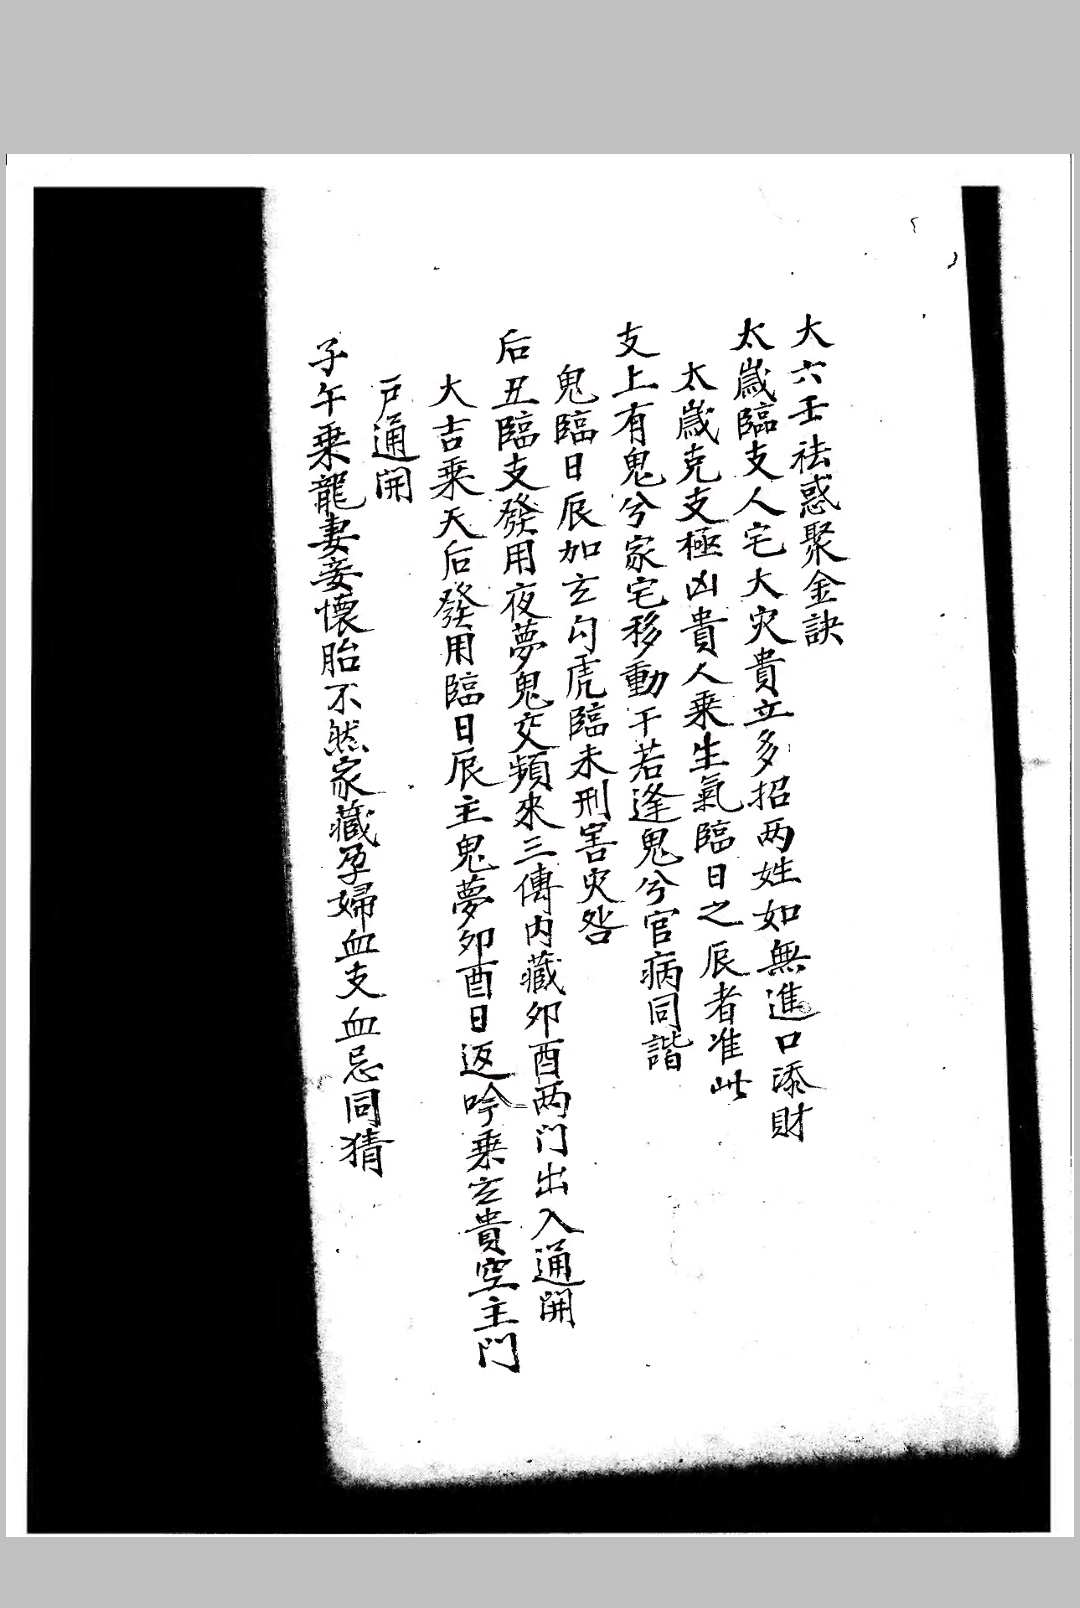 大六壬祛惑聚金訣
太歲臨支人宅大灾貴立多招两姓如無進口添財
太歲克支極凶貴人乗生氣臨日之辰者准此
支上有鬼兮家宅移動干若逢鬼兮官病同諧
鬼臨日辰加玄勾虎臨未刑害灾咎
后丑臨支發用夜夢鬼交頻來三傳内藏卯酉两门出入通開
大吉乗天后發用臨日辰主鬼夢卯酉日返吟乗玄貴空主門
戸通開
子午乗龍妻妾懷胎不然家藏孕婦血支血忌同猜